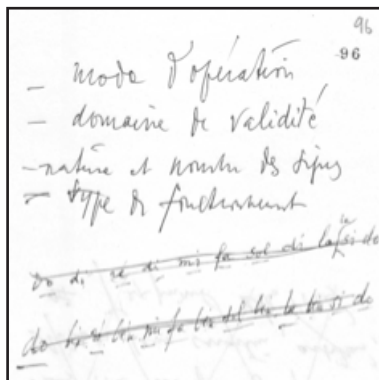 96
96
— mode d'opération
— domaine de validité
— nature et nombre des signes
— type de fonctionnement
do di ré di mi fa sol di la si do
do bis ré bis mi fa bis sol bis la bis si do